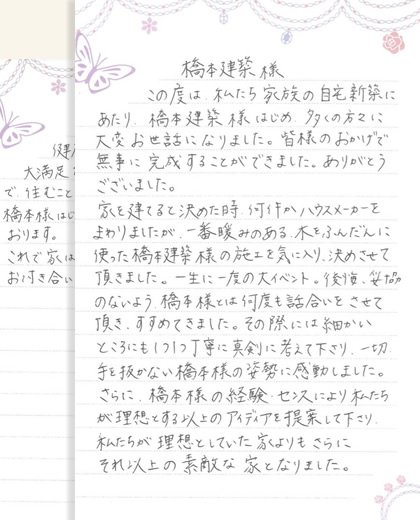 橋本建築様
この度は、私たち家族の自宅新築に
あたり、橋本建築様はじめ、多くの方々に
大変お世話になりました。皆様のおかげで
無事に完成することができました。ありがとう
ございました。
家を建てると決めた時、何件かハウスメーカーを
まわりましたが、一番暖みのある、木をふんだんに
使った橋本建築様の施工を気に入り、決めさせて
頂きました。一生に一度の大イベント。後悔、妥協
のないよう、橋本様とは何度も話合いをさせて
頂き、すすめてきました。その際には細かい
ところにも1つ1つ丁寧に真剣に考えて下さり、一切、
手を抜かない橋本様の姿勢に感動しました。
さらに、橋本様の経験・センスにより私たち
が理想とする以上のアイディアを提案して下さり、
私たちが理想としていた家よりもさらに
それ以上の素敵な家となりました。
大満足
で、住むこと
橋本様はじ
おります。
これで家は
お付き合い